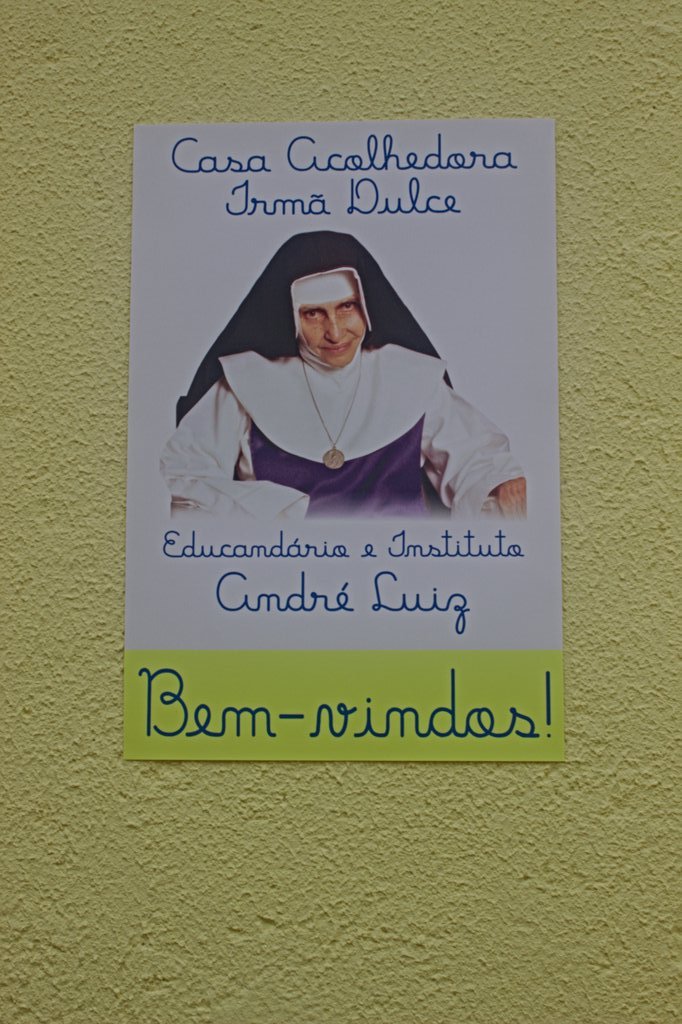 Casa Acolhedora
Irmã Dulce
Educandário e Instituto
André Luiz
Bem-vindos!